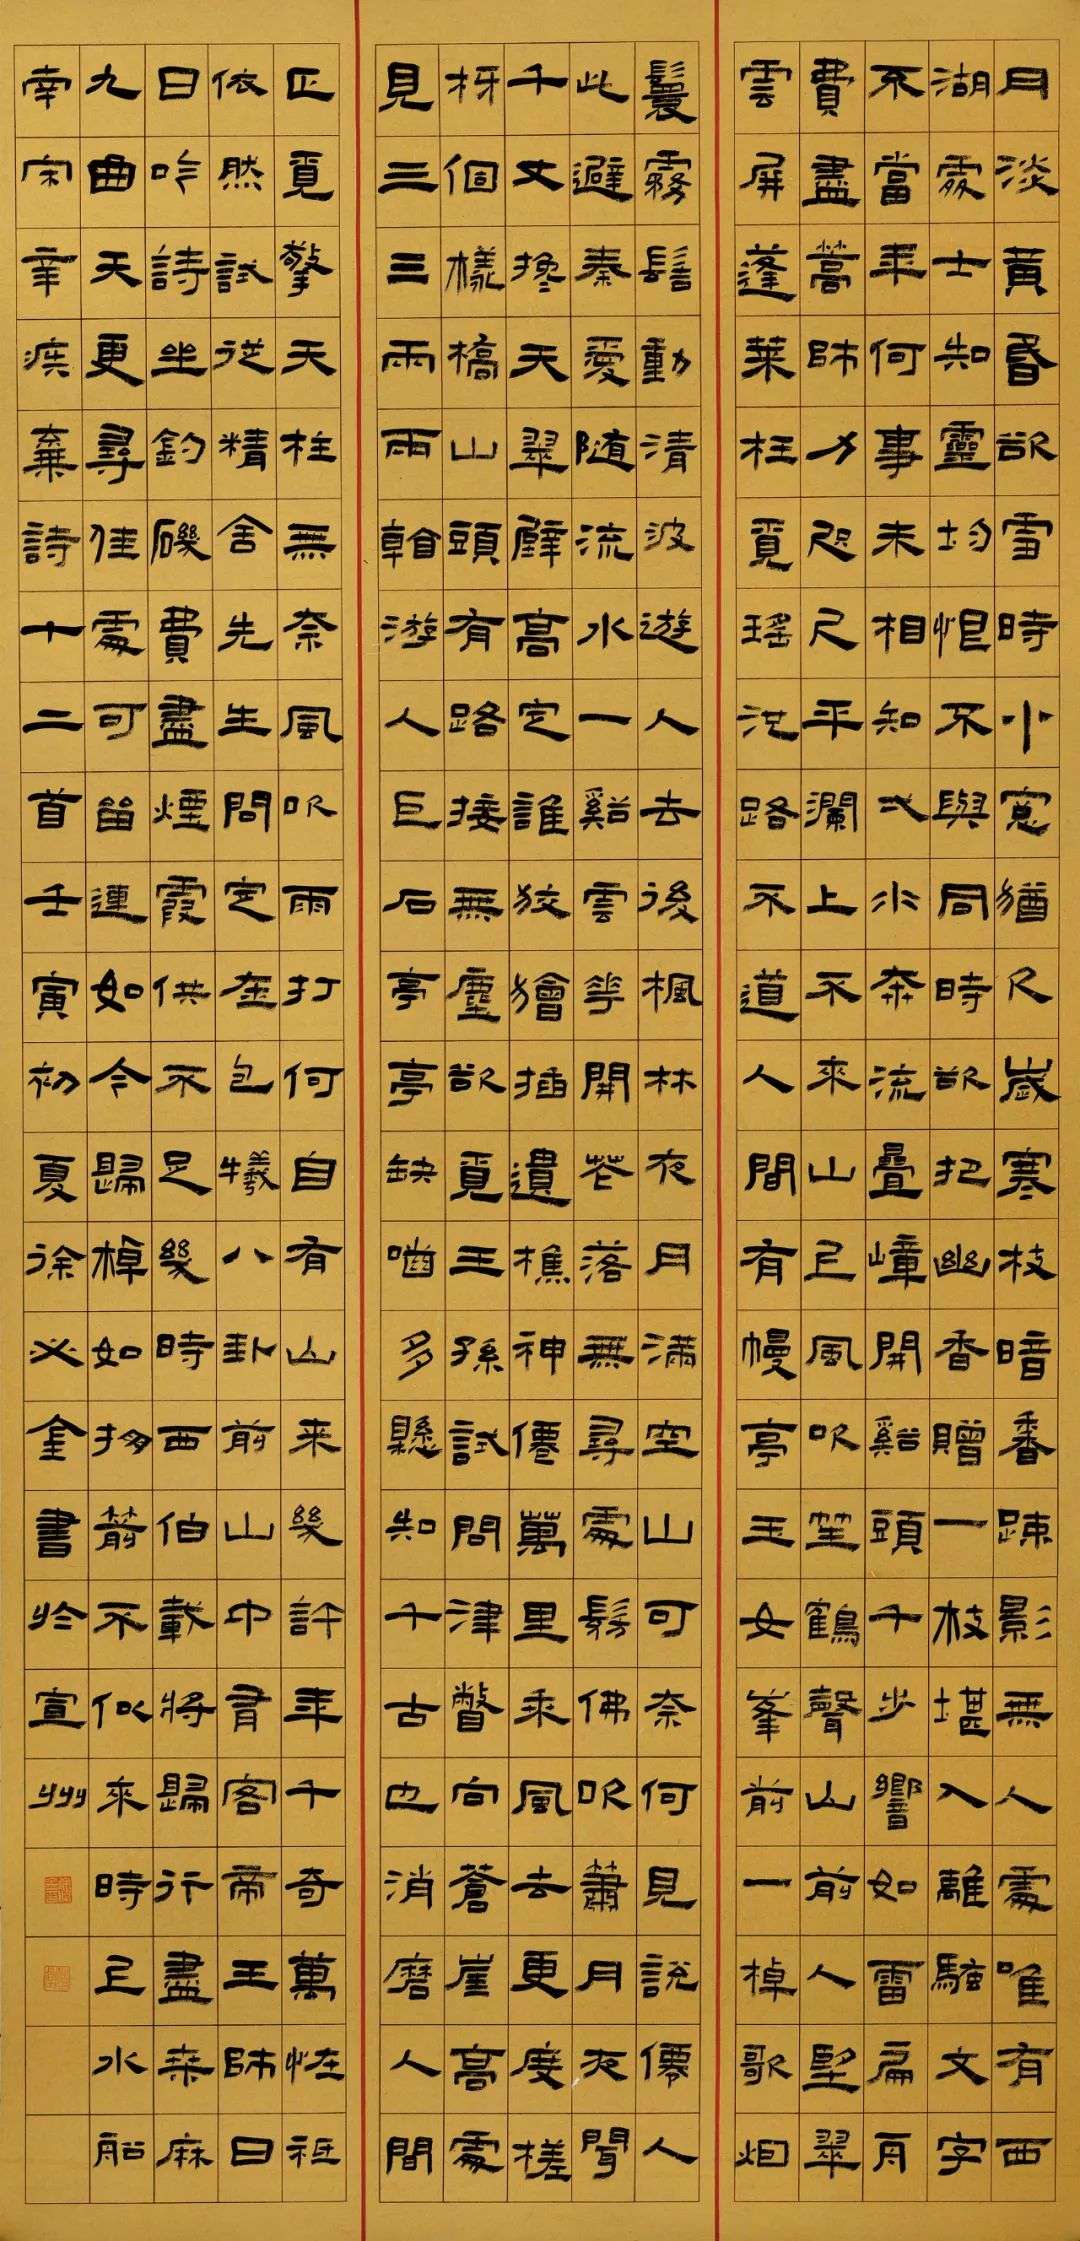 月淡黃昏欲雪時小窻猶欠歲寒枝暗香踈影無人處唯有西
湖處士知靈均恨不與同時欲把幽香贈一枝堪入離騷文字
不當年何事未相知弍水奔流疊嶂開谿頭千步響如雷扁舟
費盡蒿師力咫尺平瀾上不來山上風吹笙鶴聲山前人望翠
雲屏蓬萊枉覓瑤池路不道人間有幔亭玉女峯前一棹歌烟
鬟霧髻動清波遊人去後楓林夜月滿空山可奈何見說僊人
此避秦愛隨流水一谿雲花開花落無尋處髣佛吹簫月夜聞
千丈攙天翠壁高定誰狡獪插遺樵神僊萬里乘風去更度槎
枒個樣橋山頭有路接無塵欲覓王孫試問津瞥向蒼崖高處
見三三兩兩看游人巨石亭亭缺嚙多懸知千古也消磨人間
正覓擎天柱無奈風吹雨打何自有山来幾許年千奇萬怪祗
依然試從精舍先生問定在包犧八卦前山中有客帝王師日
日吟詩坐釣磯費盡煙霞供不足幾時西伯載將歸行盡桑麻
九曲天更尋佳處可留連如今歸棹如箭不似來時上水船
南宋辛疾棄詩十二首壬寅初夏徐必金書於宣州